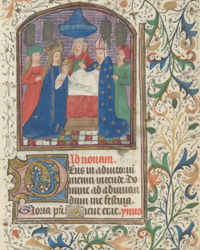 Ad nonam.
Deus in adiutori
meum intende. Do
mine ad adiuuan
dum me festina.
Gloria pri Sicut erat.